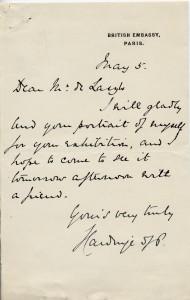 BRITISH EMBASSY,
PARIS.
May 5.
Dear Mr de Laszlo
I will gladly
lend your portrait of myself
for your exhibition, and
hope to come to see it
tomorrow afternoon with
a friend.
Yours very truly
Hardinge of P.